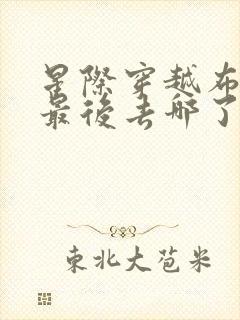 星際穿越布
最後去哪了
東北大苞米